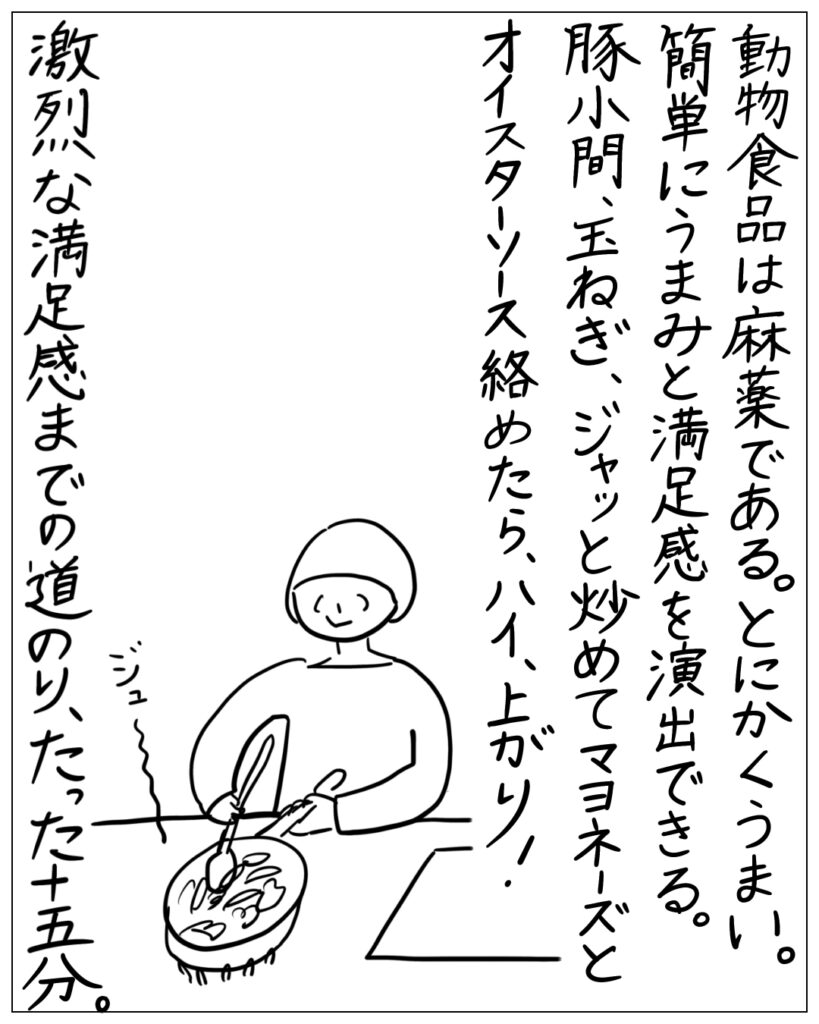 動物食品は麻薬である。とにかくうまい。
簡単にうまみと満足感を演出できる。
豚小間、玉ねぎ、ジャッと炒めてマヨネーズと
オイスターソース絡めたら、ハイ、上がり！
ジュー
激烈な満足感までの道のり、たった十五分。